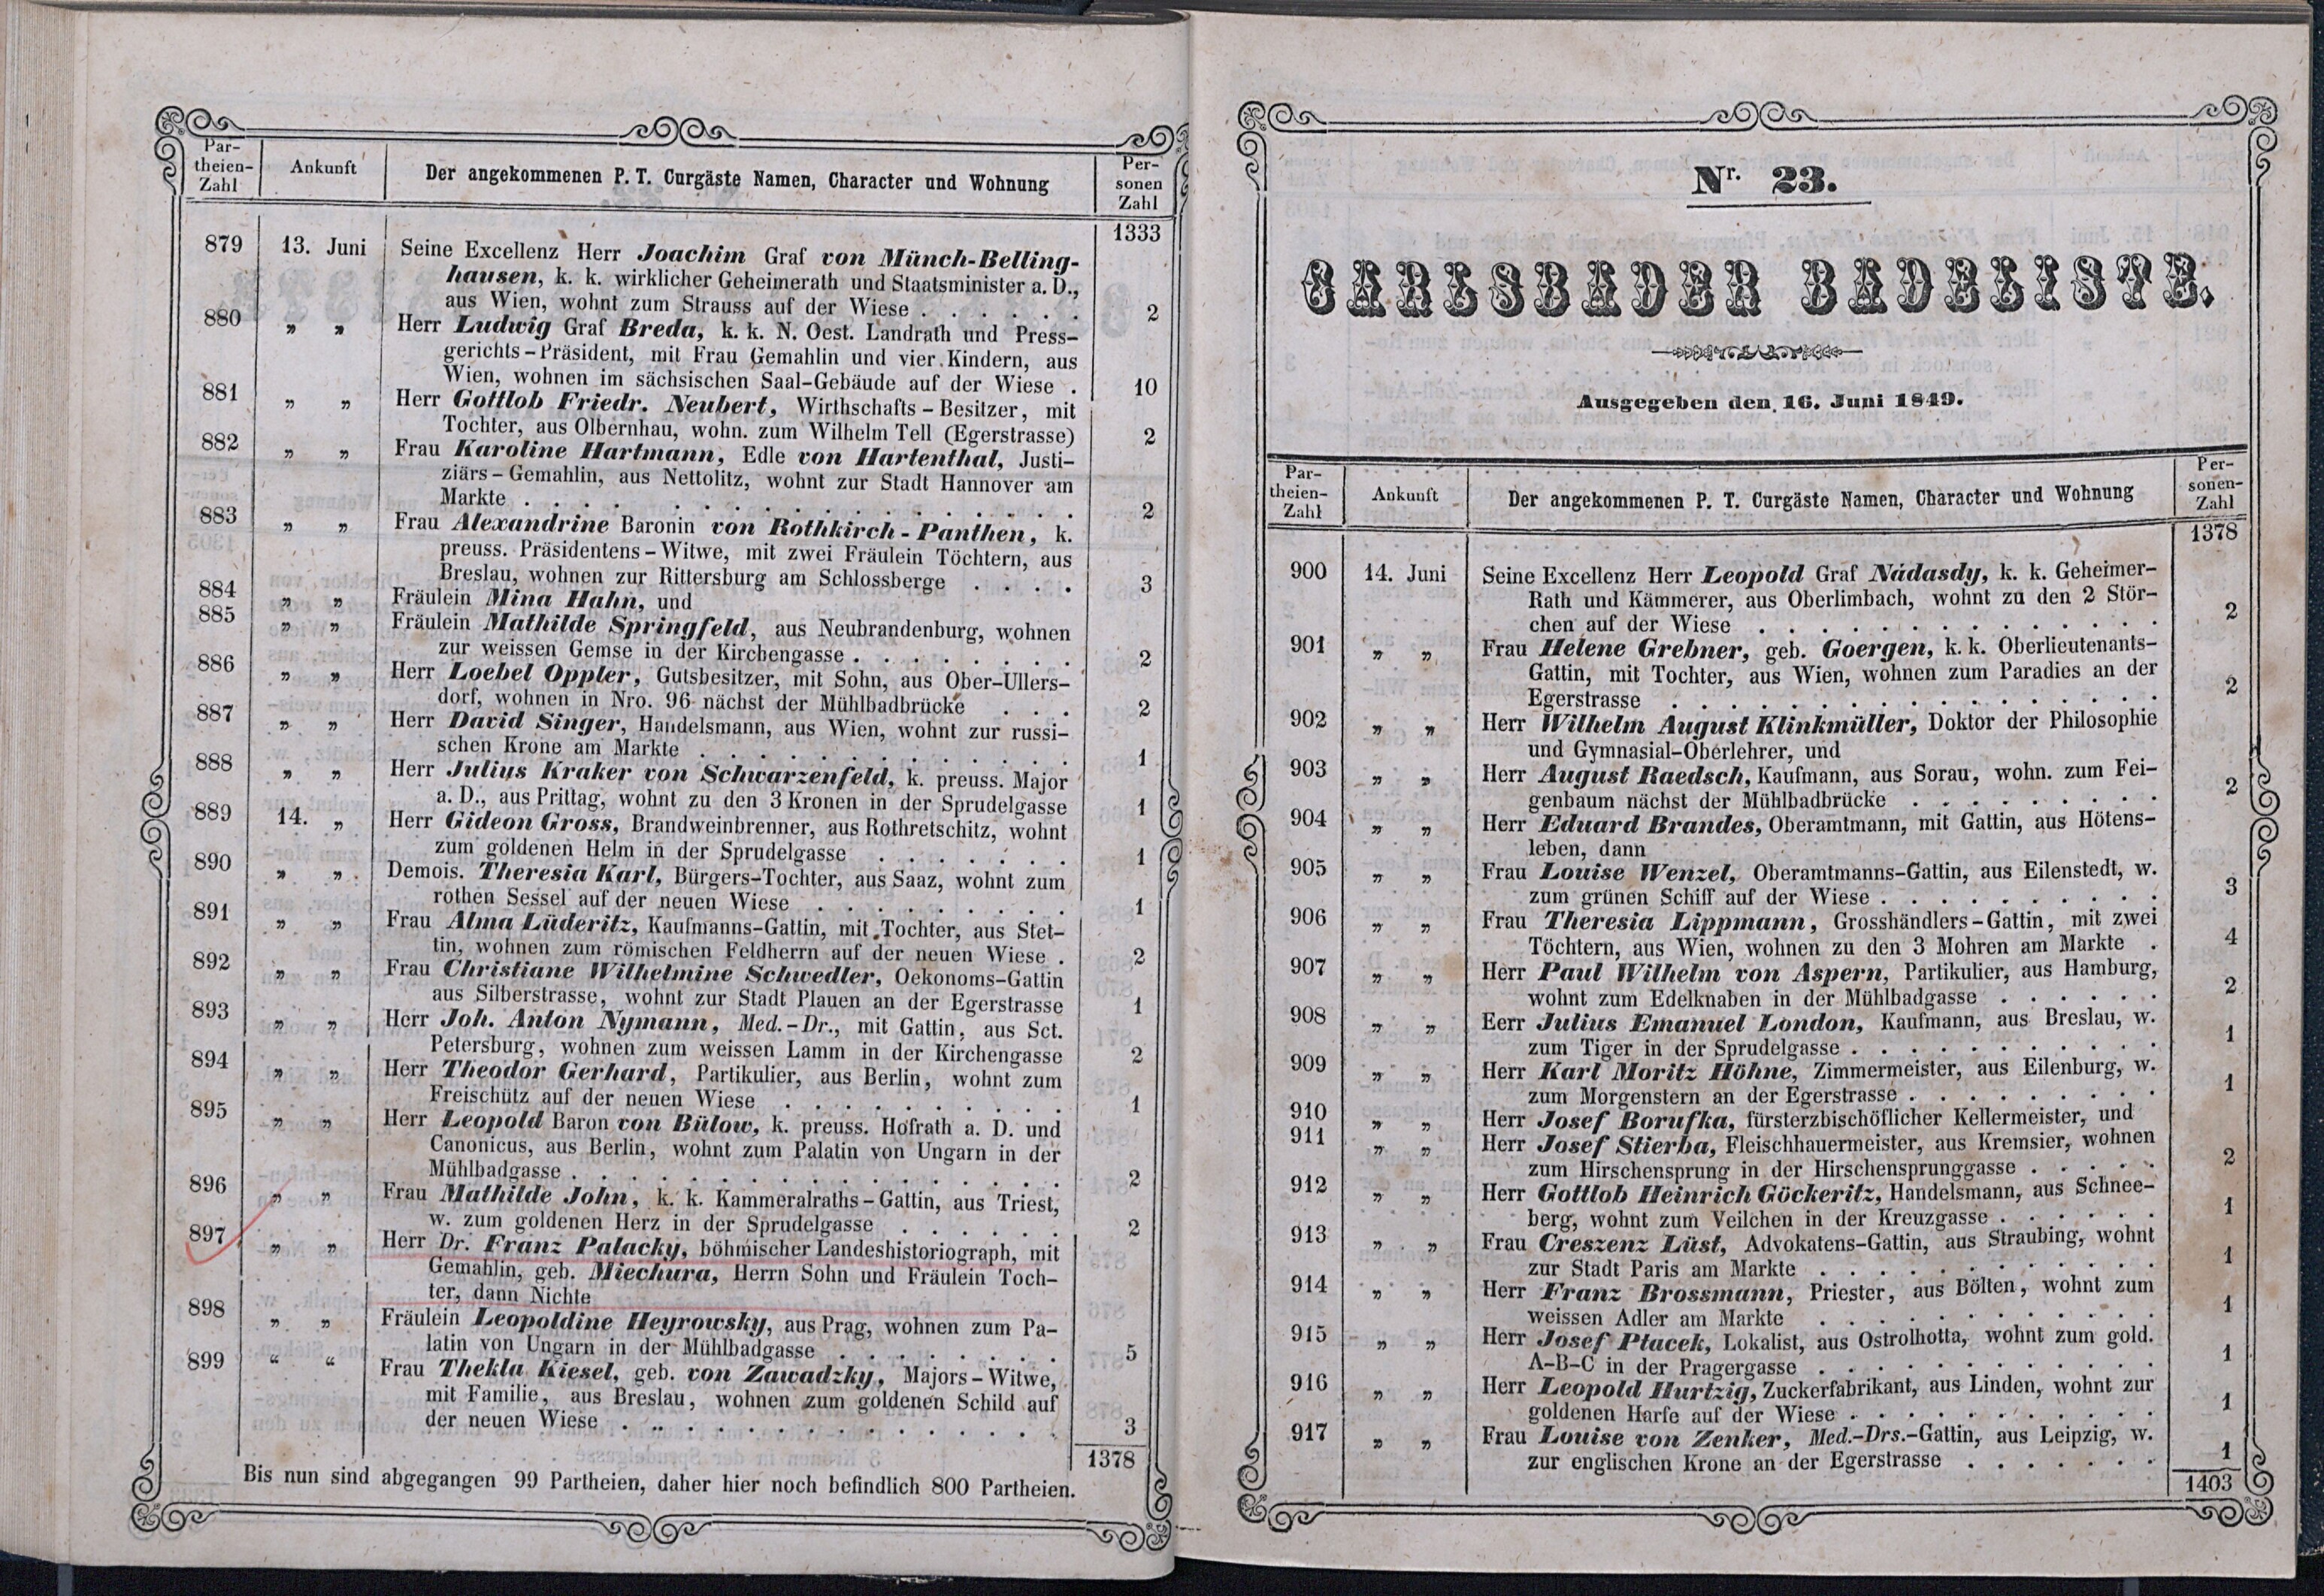 Par-
theien-
Zahl
Ankunft
Der angekommenen P. T. Curgäste Namen, Character und Wohnung
Per-
sonen
Zahl
1333
879 13. Juni Seine Excellenz Herr Joachim Graf von Münch-Belling-
hausen, k. k. wirklicher Geheimerath und Staatsminister a. D.,
aus Wien, wohnt zum Strauss auf der Wiese . . . . . . 2
880 „ „ Herr Ludwig Graf Breda, k. k. N. Oest. Landrath und Press-
gerichts-Präsident, mit Frau Gemahlin und vier Kindern, aus
Wien, wohnen im sächsischen Saal-Gebäude auf der Wiese . 10
881 „ „ Herr Gottlob Friedr. Neubert, Wirthschafts-Besitzer, mit
Tochter, aus Olbernhau, wohn. zum Wilhelm Tell (Egerstrasse) 2
882 „ „ Frau Karoline Hartmann, Edle von Hartenthal, Justi-
ziärs-Gemahlin, aus Nettolitz, wohnt zur Stadt Hannover am
Markte . . . . . . . . . . . . . . . . 2
883 „ „ Frau Alexandrine Baronin von Rothkirch-Panthen, k.
preuss. Präsidentens-Witwe, mit zwei Fräulein Töchtern, aus
Breslau, wohnen zur Rittersburg am Schlossberge . . . . 3
884 „ „ Fräulein Mina Hahn, und
885 „ „ Fräulein Mathilde Springfeld, aus Neubrandenburg, wohnen
zur weissen Gemse in der Kirchengasse . . . . . . . 2
886 „ „ Herr Loebel Oppler, Gutsbesitzer, mit Sohn, aus Ober-Ullers-
dorf, wohnen in Nro. 96 nächst der Mühlbadbrücke . . . 2
887 „ „ Herr David Singer, Handelsmann, aus Wien, wohnt zur russi-
schen Krone am Markte . . . . . . . . . . . 1
888 „ „ Herr Julius Kraker von Schwarzenfeld, k. preuss. Major
a. D., aus Prittag, wohnt zu den 3 Kronen in der Sprudelgasse 1
889 14. „ Herr Gideon Gross, Brandweinbrenner, aus Rothretschitz, wohnt
zum goldenen Helm in der Sprudelgasse . . . . . . . 1
890 „ „ Demois. Theresia Karl, Bürgers-Tochter, aus Saaz, wohnt zum
rothen Sessel auf der neuen Wiese . . . . . . . . . 1
891 „ „ Frau Alma Lüderitz, Kaufmanns-Gattin, mit Tochter, aus Stet-
tin, wohnen zum römischen Feldherrn auf der neuen Wiese . 2
892 „ „ Frau Christiane Wilhelmine Schwedler, Oekonoms-Gattin
aus Silberstrasse, wohnt zur Stadt Plauen an der Egerstrasse 1
893 „ „ Herr Joh. Anton Nymann, Med.-Dr., mit Gattin, aus Sct.
Petersburg, wohnen zum weissen Lamm in der Kirchengasse 2
894 „ „ Herr Theodor Gerhard, Partikulier, aus Berlin, wohnt zum
Freischütz auf der neuen Wiese . . . . . . . . . . 1
895 „ „ Herr Leopold Baron von Bülow, k. preuss. Hofrath a. D. und
Canonicus, aus Berlin, wohnt zum Palatin von Ungarn in der
Mühlbadgasse . . . . . . . . . . . . . . . 2
896 „ „ Frau Mathilde John, k. k. Kammeralraths-Gattin, aus Triest,
w. zum goldenen Herz in der Sprudelgasse . . . . . . 2
897 „ „ Herr Dr. Franz Palacky, böhmischer Landeshistoriograph, mit
Gemahlin, geb. Miechura, Herrn Sohn und Fräulein Toch-
ter, dann Nichte
898 „ „ Fräulein Leopoldine Heyrowsky, aus Prag, wohnen zum Pa-
latin von Ungarn in der Mühlbadgasse . . . . . . . . 5
899 “ “ Frau Thekla Kiesel, geb. von Zawadzky, Majors-Witwe,
mit Familie, aus Breslau, wohnen zum goldenen Schild auf
der neuen Wiese . . . . . . . . . . . . . . 3
1378
Bis nun sind abgegangen 99 Partheien, daher hier noch befindlich 800 Partheien.
Nr. 23.
CARLSBADER BADELISTE.
Ausgegeben den 16. Juni 1849.
Par-
theien-
Zahl
Ankunft
Der angekommenen P. T. Curgäste Namen, Character und Wohnung
Per-
sonen-
Zahl
1378
900 14. Juni Seine Excellenz Herr Leopold Graf Nádasdy, k. k. Geheimer-
Rath und Kämmerer, aus Oberlimbach, wohnt zu den 2 Stör-
chen auf der Wiese . . . . . . . . . . . . . 2
901 „ „ Frau Helene Grebner, geb. Goergen, k. k. Oberlieutenants-
Gattin, mit Tochter, aus Wien, wohnen zum Paradies an der
Egerstrasse . . . . . . . . . . . . . . . 2
902 „ „ Herr Wilhelm August Klinkmüller, Doktor der Philosophie
und Gymnasial-Oberlehrer, und
903 „ „ Herr August Raedsch, Kaufmann, aus Sorau, wohn. zum Fei-
genbaum nächst der Mühlbadbrücke . . . . . . . . . 2
904 „ „ Herr Eduard Brandes, Oberamtmann, mit Gattin, aus Hötens-
leben, dann
905 „ „ Frau Louise Wenzel, Oberamtmanns-Gattin, aus Eilenstedt, w.
zum grünen Schiff auf der Wiese . . . . . . . . . . 3
906 „ „ Frau Theresia Lippmann, Grosshändlers-Gattin, mit zwei
Töchtern, aus Wien, wohnen zu den 3 Mohren am Markte . 4
907 „ „ Herr Paul Wilhelm von Aspern, Partikulier, aus Hamburg,
wohnt zum Edelknaben in der Mühlbadgasse . . . . . . 2
908 „ „ Eerr Julius Emanuel London, Kaufmann, aus Breslau, w.
zum Tiger in der Sprudelgasse . . . . . . . . . . . 1
909 „ „ Herr Karl Moritz Höhne, Zimmermeister, aus Eilenburg, w.
zum Morgenstern an der Egerstrasse . . . . . . . . . 1
910 „ „ Herr Josef Borufka, fürsterzbischöflicher Kellermeister, und
911 „ „ Herr Josef Stierba, Fleischhauermeister, aus Kremsier, wohnen
zum Hirschensprung in der Hirschensprunggasse . . . . . 2
912 „ „ Herr Gottlob Heinrich Göckeritz, Handelsmann, aus Schnee-
berg, wohnt zum Veilchen in der Kreuzgasse . . . . . . 1
913 „ „ Frau Creszenz Lüst, Advokatens-Gattin, aus Straubing, wohnt
zur Stadt Paris am Markte . . . . . . . . . . . . 1
914 „ „ Herr Franz Brossmann, Priester, aus Bölten, wohnt zum
weissen Adler am Markte . . . . . . . . . . . . 1
915 „ „ Herr Josef Ptacek, Lokalist, aus Ostrolhotta, wohnt zum gold.
A-B-C in der Pragergasse . . . . . . . . . . . . 1
916 „ „ Herr Leopold Hurtzig, Zuckerfabrikant, aus Linden, wohnt zur
goldenen Harfe auf der Wiese . . . . . . . . . . . 1
917 „ „ Frau Louise von Zenker, Med.-Drs.-Gattin, aus Leipzig, w.
zur englischen Krone an der Egerstrasse . . . . . . . 1
1403